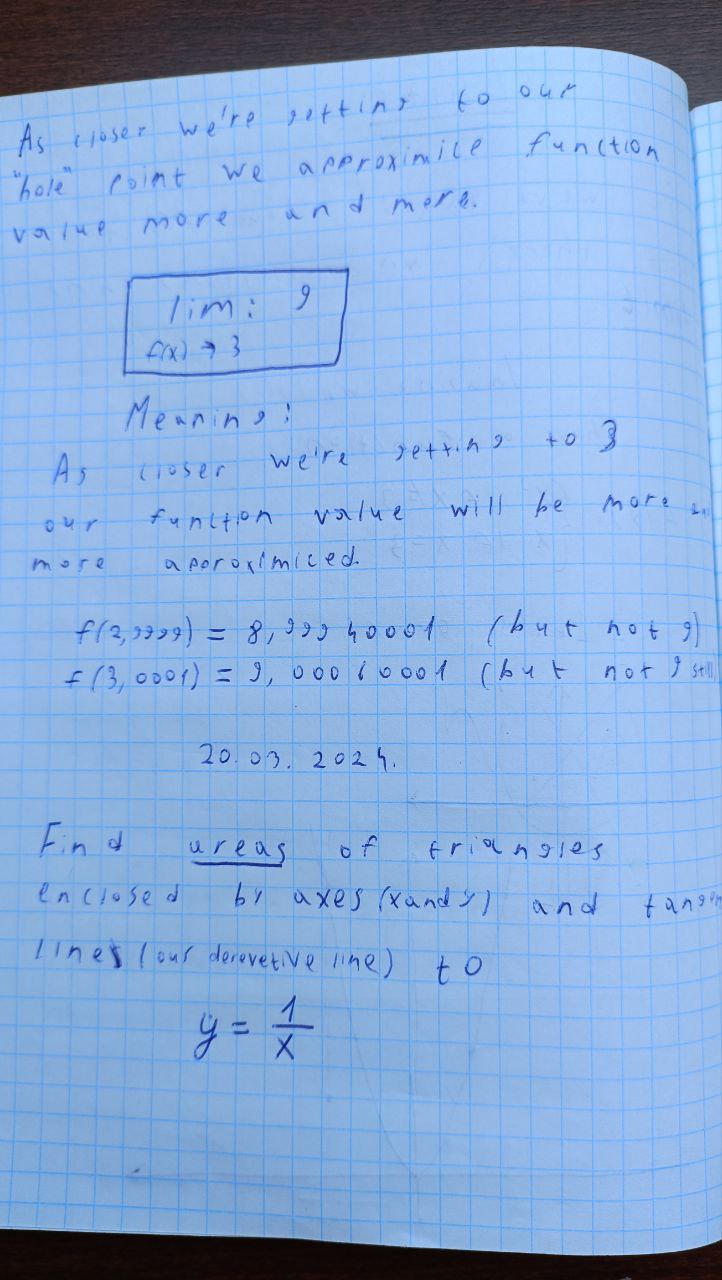 As closer we're getting to our
"hole" point we approximice function
value more and more.
lim: 9
f(x) → 3
Meaning:
As closer we're getting to 3
our function value will be more
more approximiced.
f(2,9999) = 8,99940001 (but not 9)
f(3,0001) = 9,00060001 (but not 9 still
20.03.2024.
Find areas of triangles
enclosed by axes (x and y) and tangen
lines (our derevetive line) to
y = 1/x